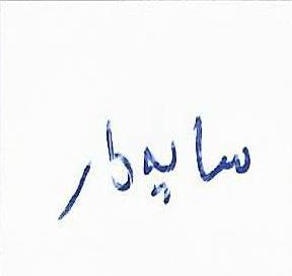 سایه دار